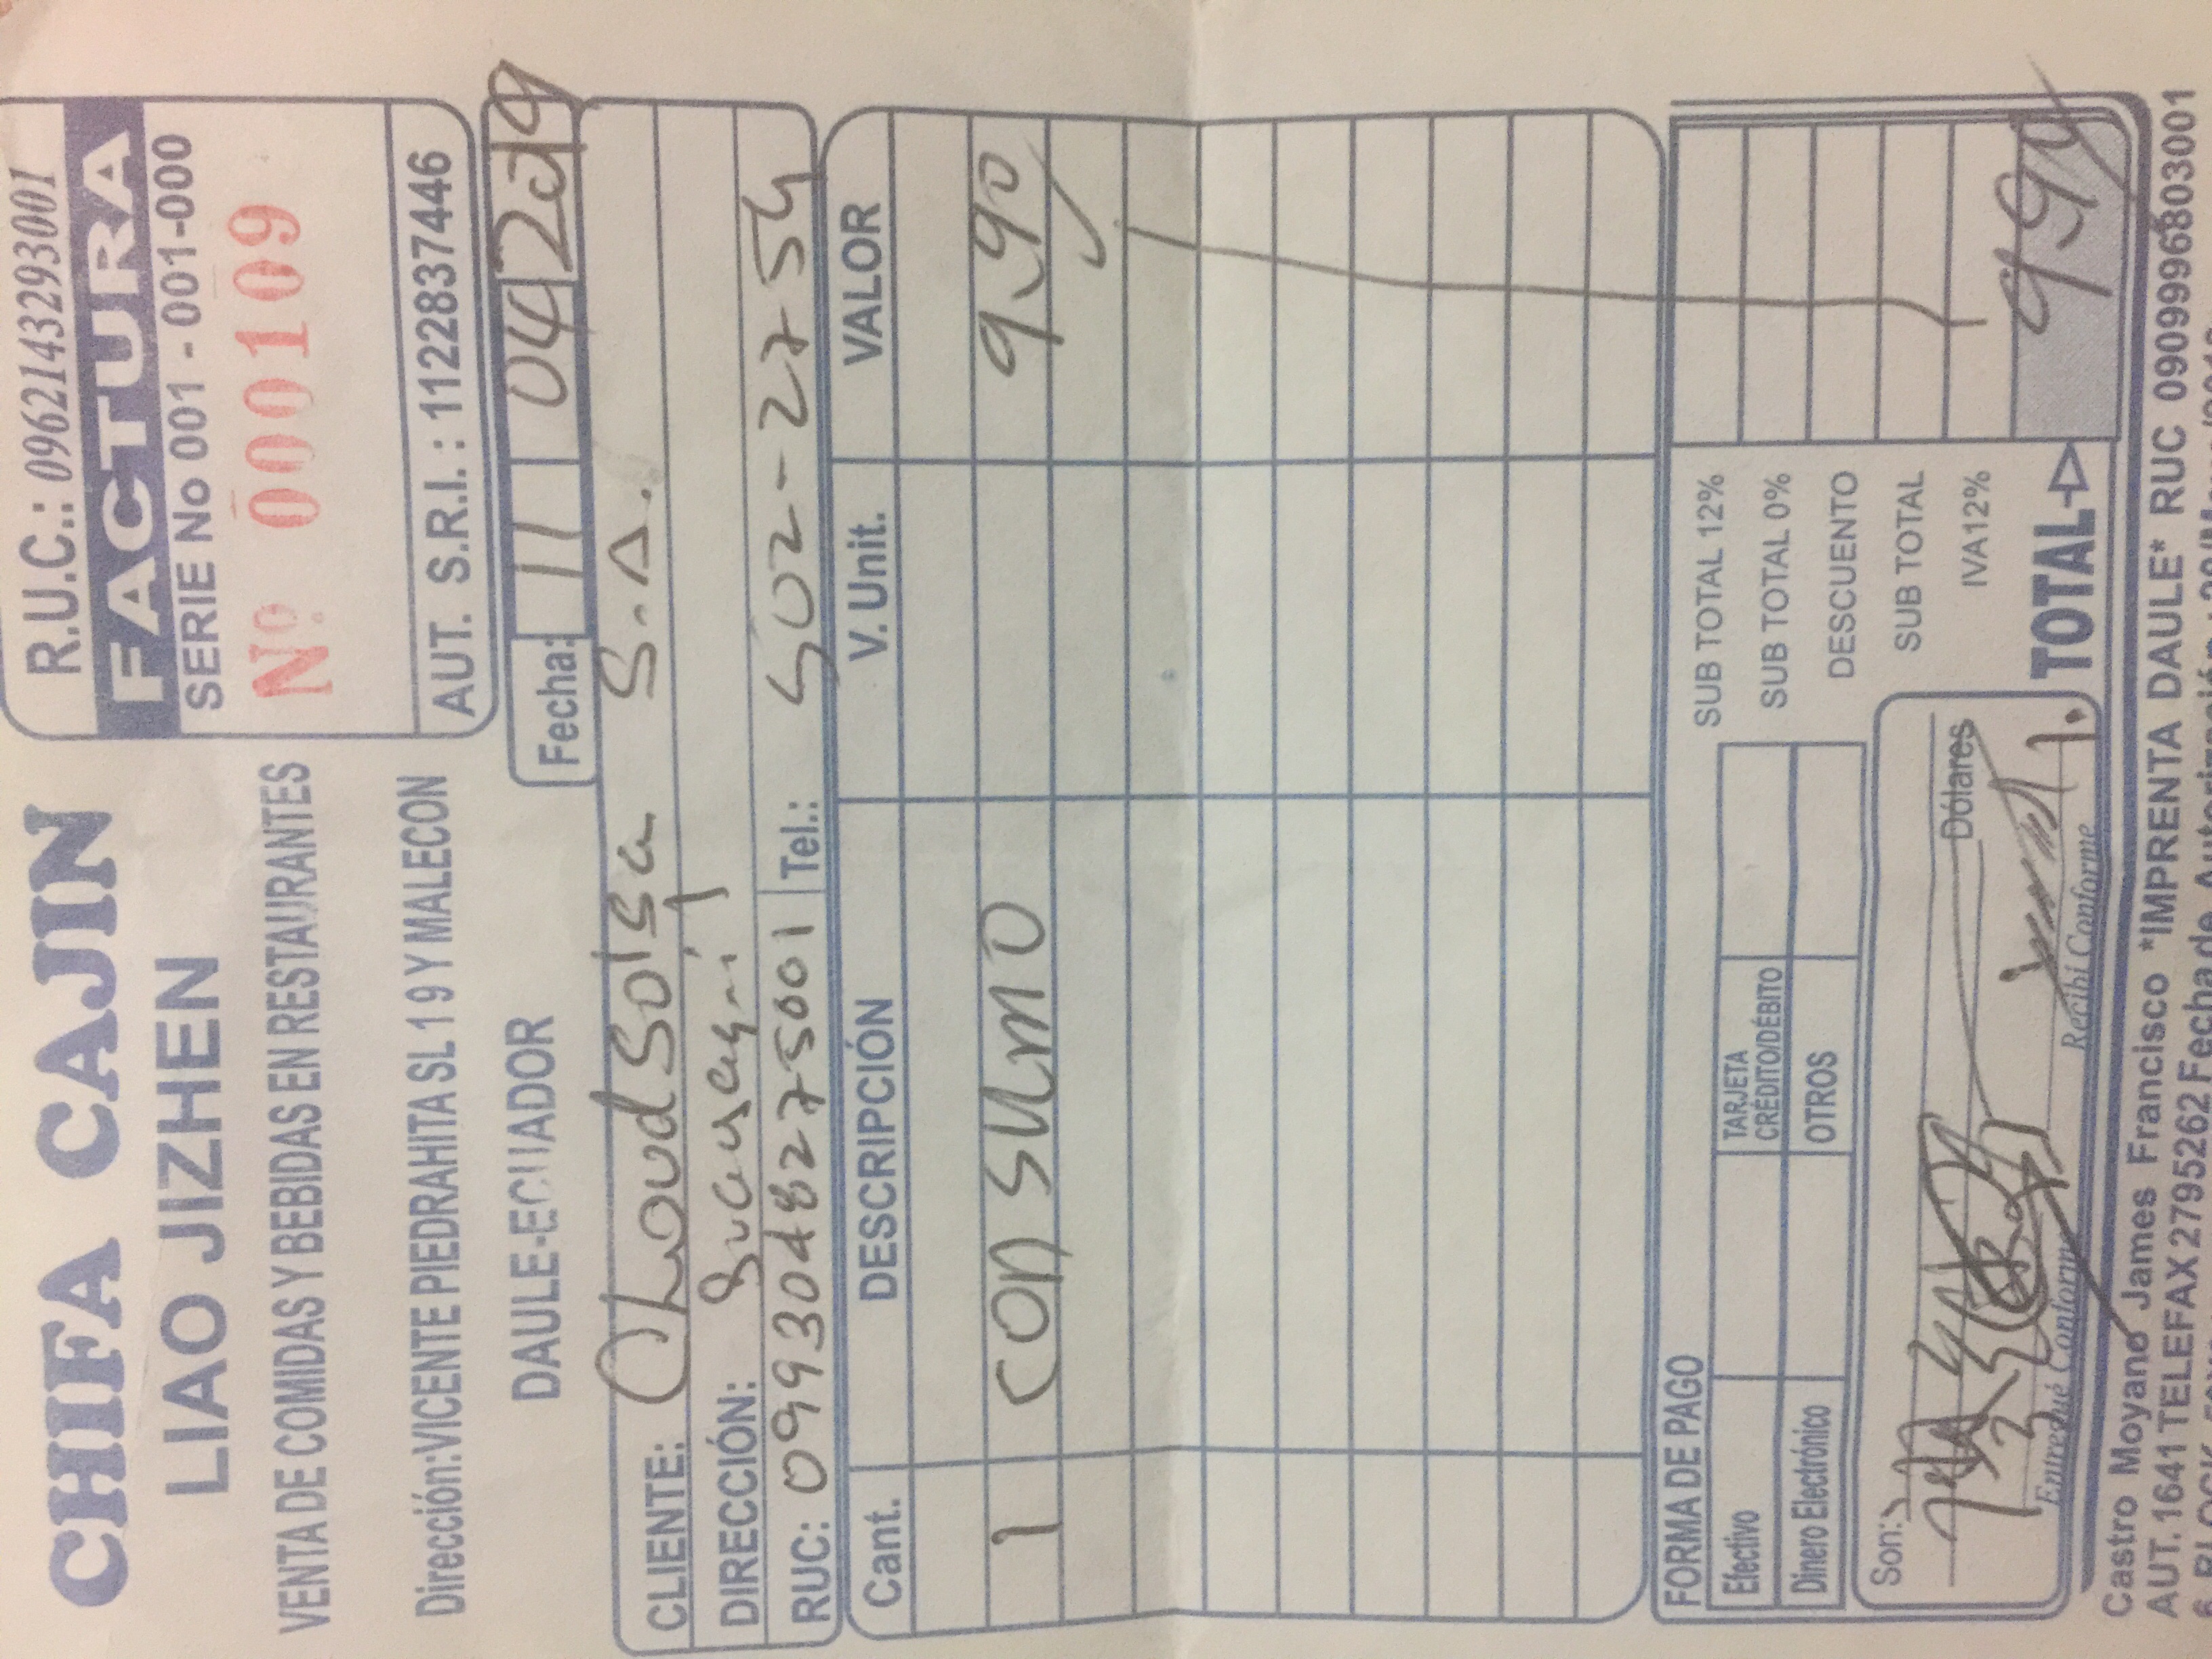 CHIFA CAJIN
LIAO JIZHEN
VENTA DE COMIDAS Y BEBIDAS EN RESTAURANTES
Dirección:VICENTE PIEDRAHITA SL 1 9 Y MALECON
DAULE-ECUADOR
R.U.C.: 0962143293001
FACTURA
SERIE No 001 - 001-000
Nº 000109
AUT. S.R.I. : 1122837446
Fecha: 11 04 2019
CLIENTE: Cloudsolsa S.A.
DIRECCIÓN: Guayaquil
RUC: 0993048275001 Tel.: 502-2754
Cant. DESCRIPCIÓN V. Unit. VALOR
1 consumo 9.90
FORMA DE PAGO
Efectivo TARJETA CRÉDITO/DÉBITO
Dinero Electrónico OTROS
SUB TOTAL 12%
SUB TOTAL 0%
DESCUENTO
SUB TOTAL
IVA12%
TOTAL 9.90
Son:
Dólares
Entregué Conforme Recibí Conforme
Castro Moyano James Francisco *IMPRENTA DAULE* RUC 0909996803001
AUT. 1641 TELEFAX 2795262 Fecha de Autorización